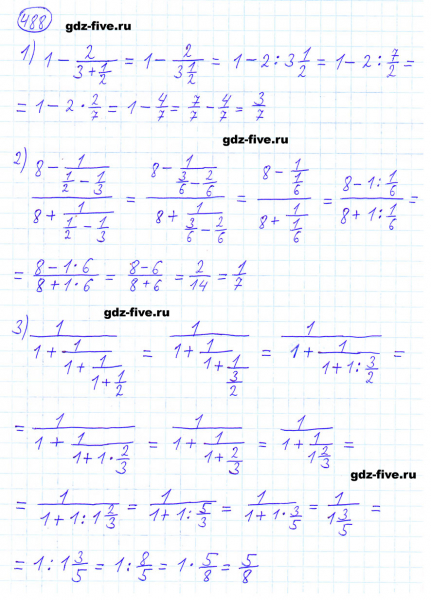 488
gdz-five.ru
1) 1 - 2/(3 + 1/2) = 1 - 2/(3 1/2) = 1 - 2 : 3 1/2 = 1 - 2 : 7/2 =
= 1 - 2 · 2/7 = 1 - 4/7 = 7/7 - 4/7 = 3/7
gdz-five.ru
2) (8 - 1/(1/2 - 1/3))/(8 + 1/(1/2 - 1/3)) = (8 - 1/(3/6 - 2/6))/(8 + 1/(3/6 - 2/6)) = (8 - 1/(1/6))/(8 + 1/(1/6)) = (8 - 1 : 1/6)/(8 + 1 : 1/6) =
= (8 - 1 · 6)/(8 + 1 · 6) = (8 - 6)/(8 + 6) = 2/14 = 1/7
gdz-five.ru
3) 1/(1 + 1/(1 + 1/(1 + 1/2))) = 1/(1 + 1/(1 + 1/(3/2))) = 1/(1 + 1/(1 + 1 : 3/2)) =
= 1/(1 + 1/(1 + 1 · 2/3)) = 1/(1 + 1/(1 + 2/3)) = 1/(1 + 1/(1 2/3)) =
gdz-five.ru
= 1/(1 + 1 : 1 2/3) = 1/(1 + 1 : 5/3) = 1/(1 + 1 · 3/5) = 1/(1 3/5) =
= 1 : 1 3/5 = 1 : 8/5 = 1 · 5/8 = 5/8